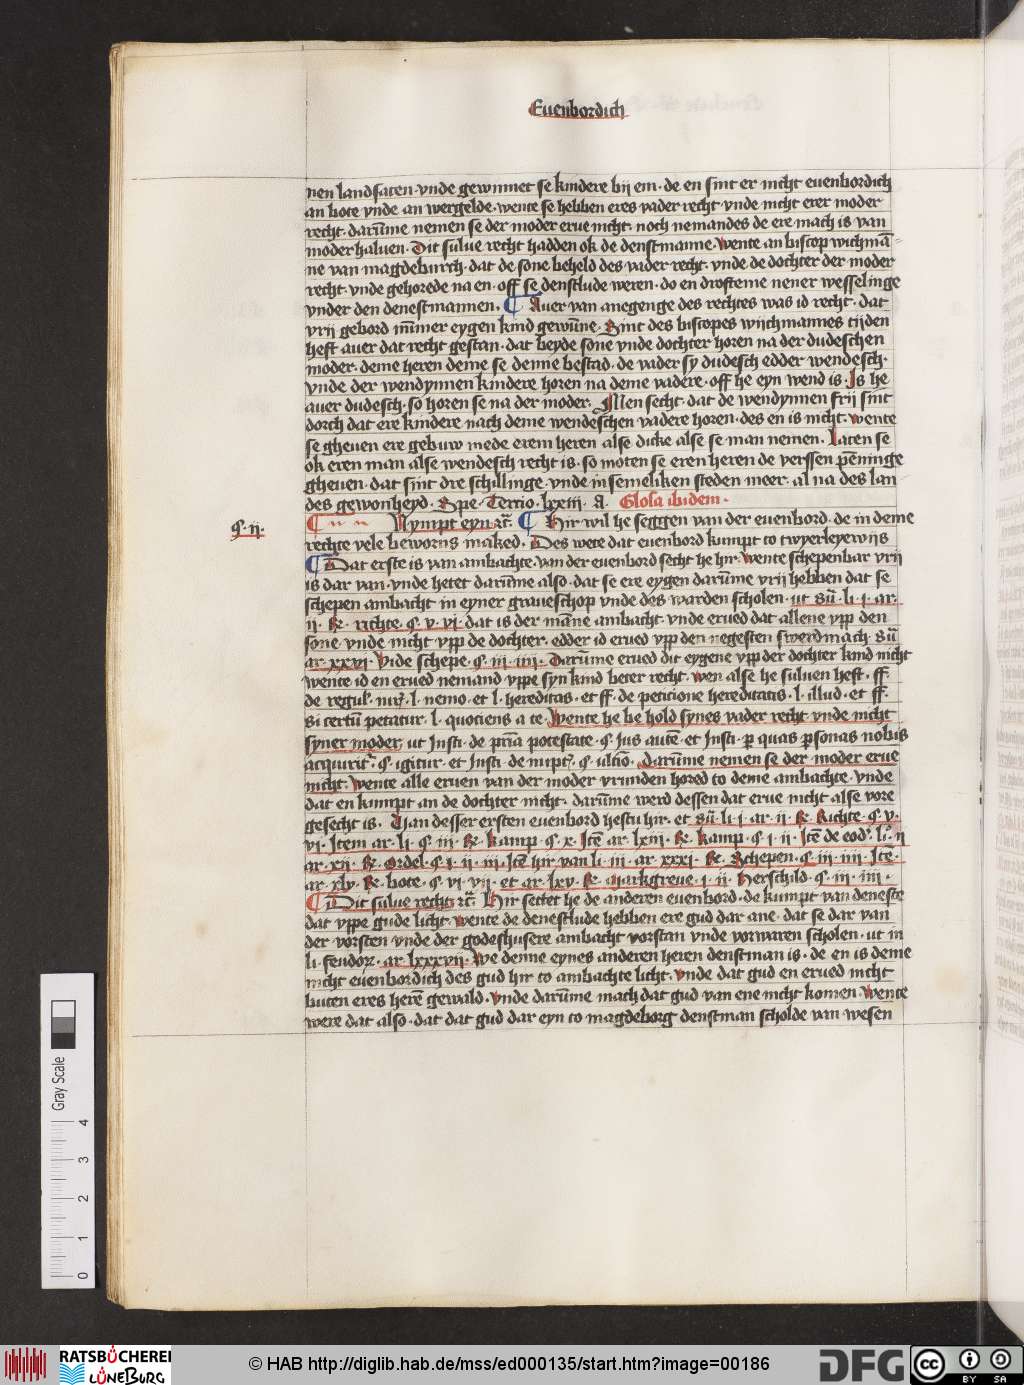 Euenbordich
nen landsaten · vnde gewinnet se kindere bij em · de en sint er nicht euenbordich
an bote vnde an wergelde · wente se hebben eres vader recht vnde nicht erer moder
recht · darūme nemen se der moder erue nicht · noch nemandes de ere mach is van
moder haluen · Dit sulue recht hadden ok de denstmanne · wente an biscop wichmā=
ne van magdeburch · dat de sone beheld des vader recht · vnde de dochter der moder
recht · vnde gehorede na en · off se denstlude weren · do en drofteme nener wesselinge
vnder den denestmannen · ¶ Auer van anegenge des rechtes was id recht · dat
vrij gebord nūmer eygen kind gewūne · Sint des biscopes wijchmannes tijden
heft auer dat recht gestan · dat beyde sone vnde dochter horen na der dudeschen
moder · deme heren deme se denne bestad · de vader sy dudesch edder wendesch ·
vnde der wendynnen kindere horen na deme vadere · off he eyn wend is · Is he
auer dudesch · so horen se na der moder · Men secht · dat de wendynnen frij sint
dorch dat ere kindere nach deme wendeschen vadere horen · des en is nicht · wente
se gheuen ere gebuw mede erem heren alse dicke alse se man nemen · Laten se
ok eren man alse wendesch recht is · so moten se eren heren de verssen pēninge
gheuen · dat sint dre schillinge · vnde in semeliken steden meer · al na des lan
des gewonheyd · Spe · Tercio · lxxiii · a · Glosa ibidem ·
§ · ij ·
¶ Nympt eyn ꝛc̄ · ¶ Hir wil he seggen van der euenbord · de in deme
rechte vele beworns maked · Des wete dat euenbord kumpt to twyerleyewijs
¶ Dat erste is van ambachte · van der euenbord secht he hir · wente schepenbar vrij
is dar van · vnde hetet darūme also · dat se ere eygen darūme vrij hebben dat se
schepen ambacht in eyner graueschop vnde des warden scholen · ut sū · li · i · ar ·
ij · richte · § · v · vi · dat is der māne ambacht · vnde erued dat allene vpp den
sone vnde nicht vpp de dochter · edder id erued vpp den negesten swerdmach · sū
ar · xxvi · vide schepe · § · iij · iiij · Darūme erued dit eygene vpp der dochter kind nicht
wente id en erued nemand vppe syn kind beter recht · wen alse he suluen heft · ff ·
de regul · iur · l · nemo · et l · hereditas · et ff · de peticione hereditatis · l · illud · et ff ·
si certū petatur · l · quotiens a te · Wente he be hold synes vader recht vnde nicht
syner moder, ut Insti · de pria potestate · § · Ius autē · et Insti · ꝑ quas ꝑsonas nobis
acquirit · § · igitur · et Insti · de nupt · § · ultio · darūme nemen se der moder erue
nicht · Wente alle eruen van der moder vrunden hored to deme ambachte · vnde
dat en kumpt an de dochter nicht · darūme werd dessen dat erue nicht alse vore
gesecht is · Van desser ersten euenbord hestu hir · et sū · li · i · ar · ij · Richte · § · v ·
vi · Item ar · li · § · iij · Kamp · § · x · Itē ar · lxiii · Kamp · § · i · ij · Itē de eod · li · ij
ar · xij · Ordel · § · i · ij · iij · Itē hir van li · iij · ar · xxxi · Schepen · § · iij · iiij · Itē ·
ar · xlv · bote · § · vi · vij · et ar · lxv · Markgreue · i · ij · Herschild · § · iij · iiij ·
¶ Dit sulue recht ꝛc̄ · Hir settet he de anderen euenbord · de kumpt van deneste
dat vppe gude licht · wente de denestlude hebben ere gud dar ane · dat se dar van
der vorsten vnde der godeshusere ambacht vorstan vnde vorwaren scholen · ut in
li · feudoꝝ · ar · lxxxvij · We denne eynes anderen heren denstman is · de en is deme
nicht euenbordich des gud hir to ambachte licht · vnde dat gud en erued nicht
buten eres herē gewald · Vnde darūme mach dat gud van ene nicht komen · Wente
were dat also · dat dat gud dar eyn to magdeborg denstman scholde van wesen
Gray Scale
4
3
2
1
0
RATSBÜCHEREI
LÜNEBURG
© HAB http://diglib.hab.de/mss/ed000135/start.htm?image=00186
DFG
cc
BY SA